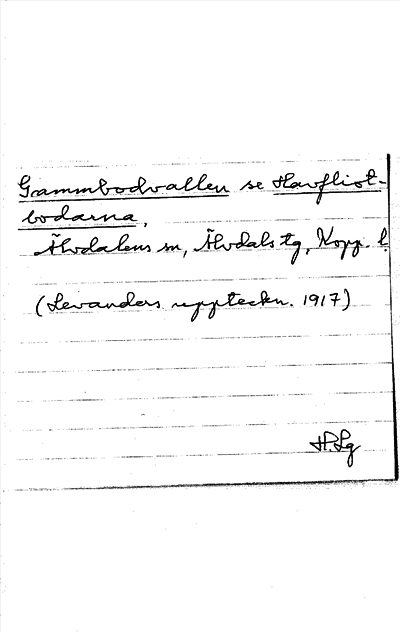 Grammbodvallen se Havfliot-
bodarna,
Älvdalens sn, Älvdals tg, Kopp. l.
(Levanders uppteckn. 1917)
H. Lg